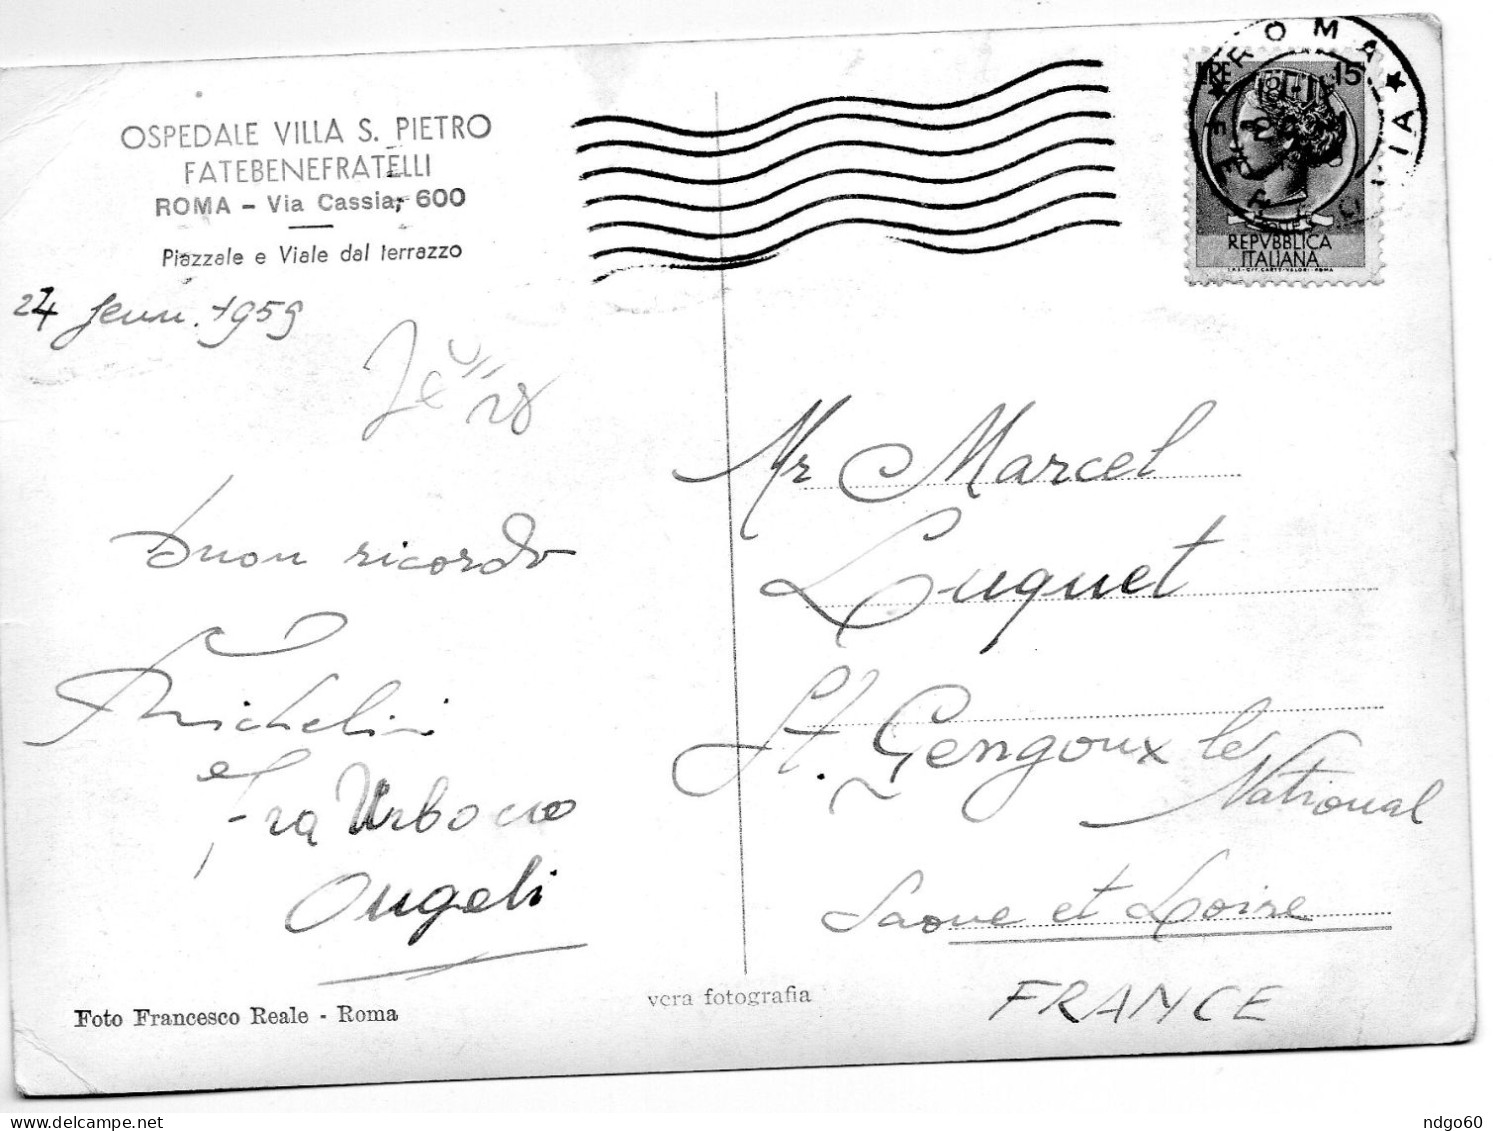 OSPEDALE VILLA S. PIETRO
FATEBENEFRATELLI
ROMA - Via Cassia, 600
Piazzale e Viale dal terrazzo
24 Jenn. 1959
buon ricordo
Michelini
e Fra Urbano
Angeli
Foto Francesco Reale - Roma
vera fotografia
ROMA
FERROVIA
LIRE 15
REPVBBLICA
ITALIANA
I.P.S.-OFF. CARTE-VALORI-ROMA
Mr Marcel
Luquet
St. Gengoux le
National
Saone et Loire
FRANCE
ndgo60